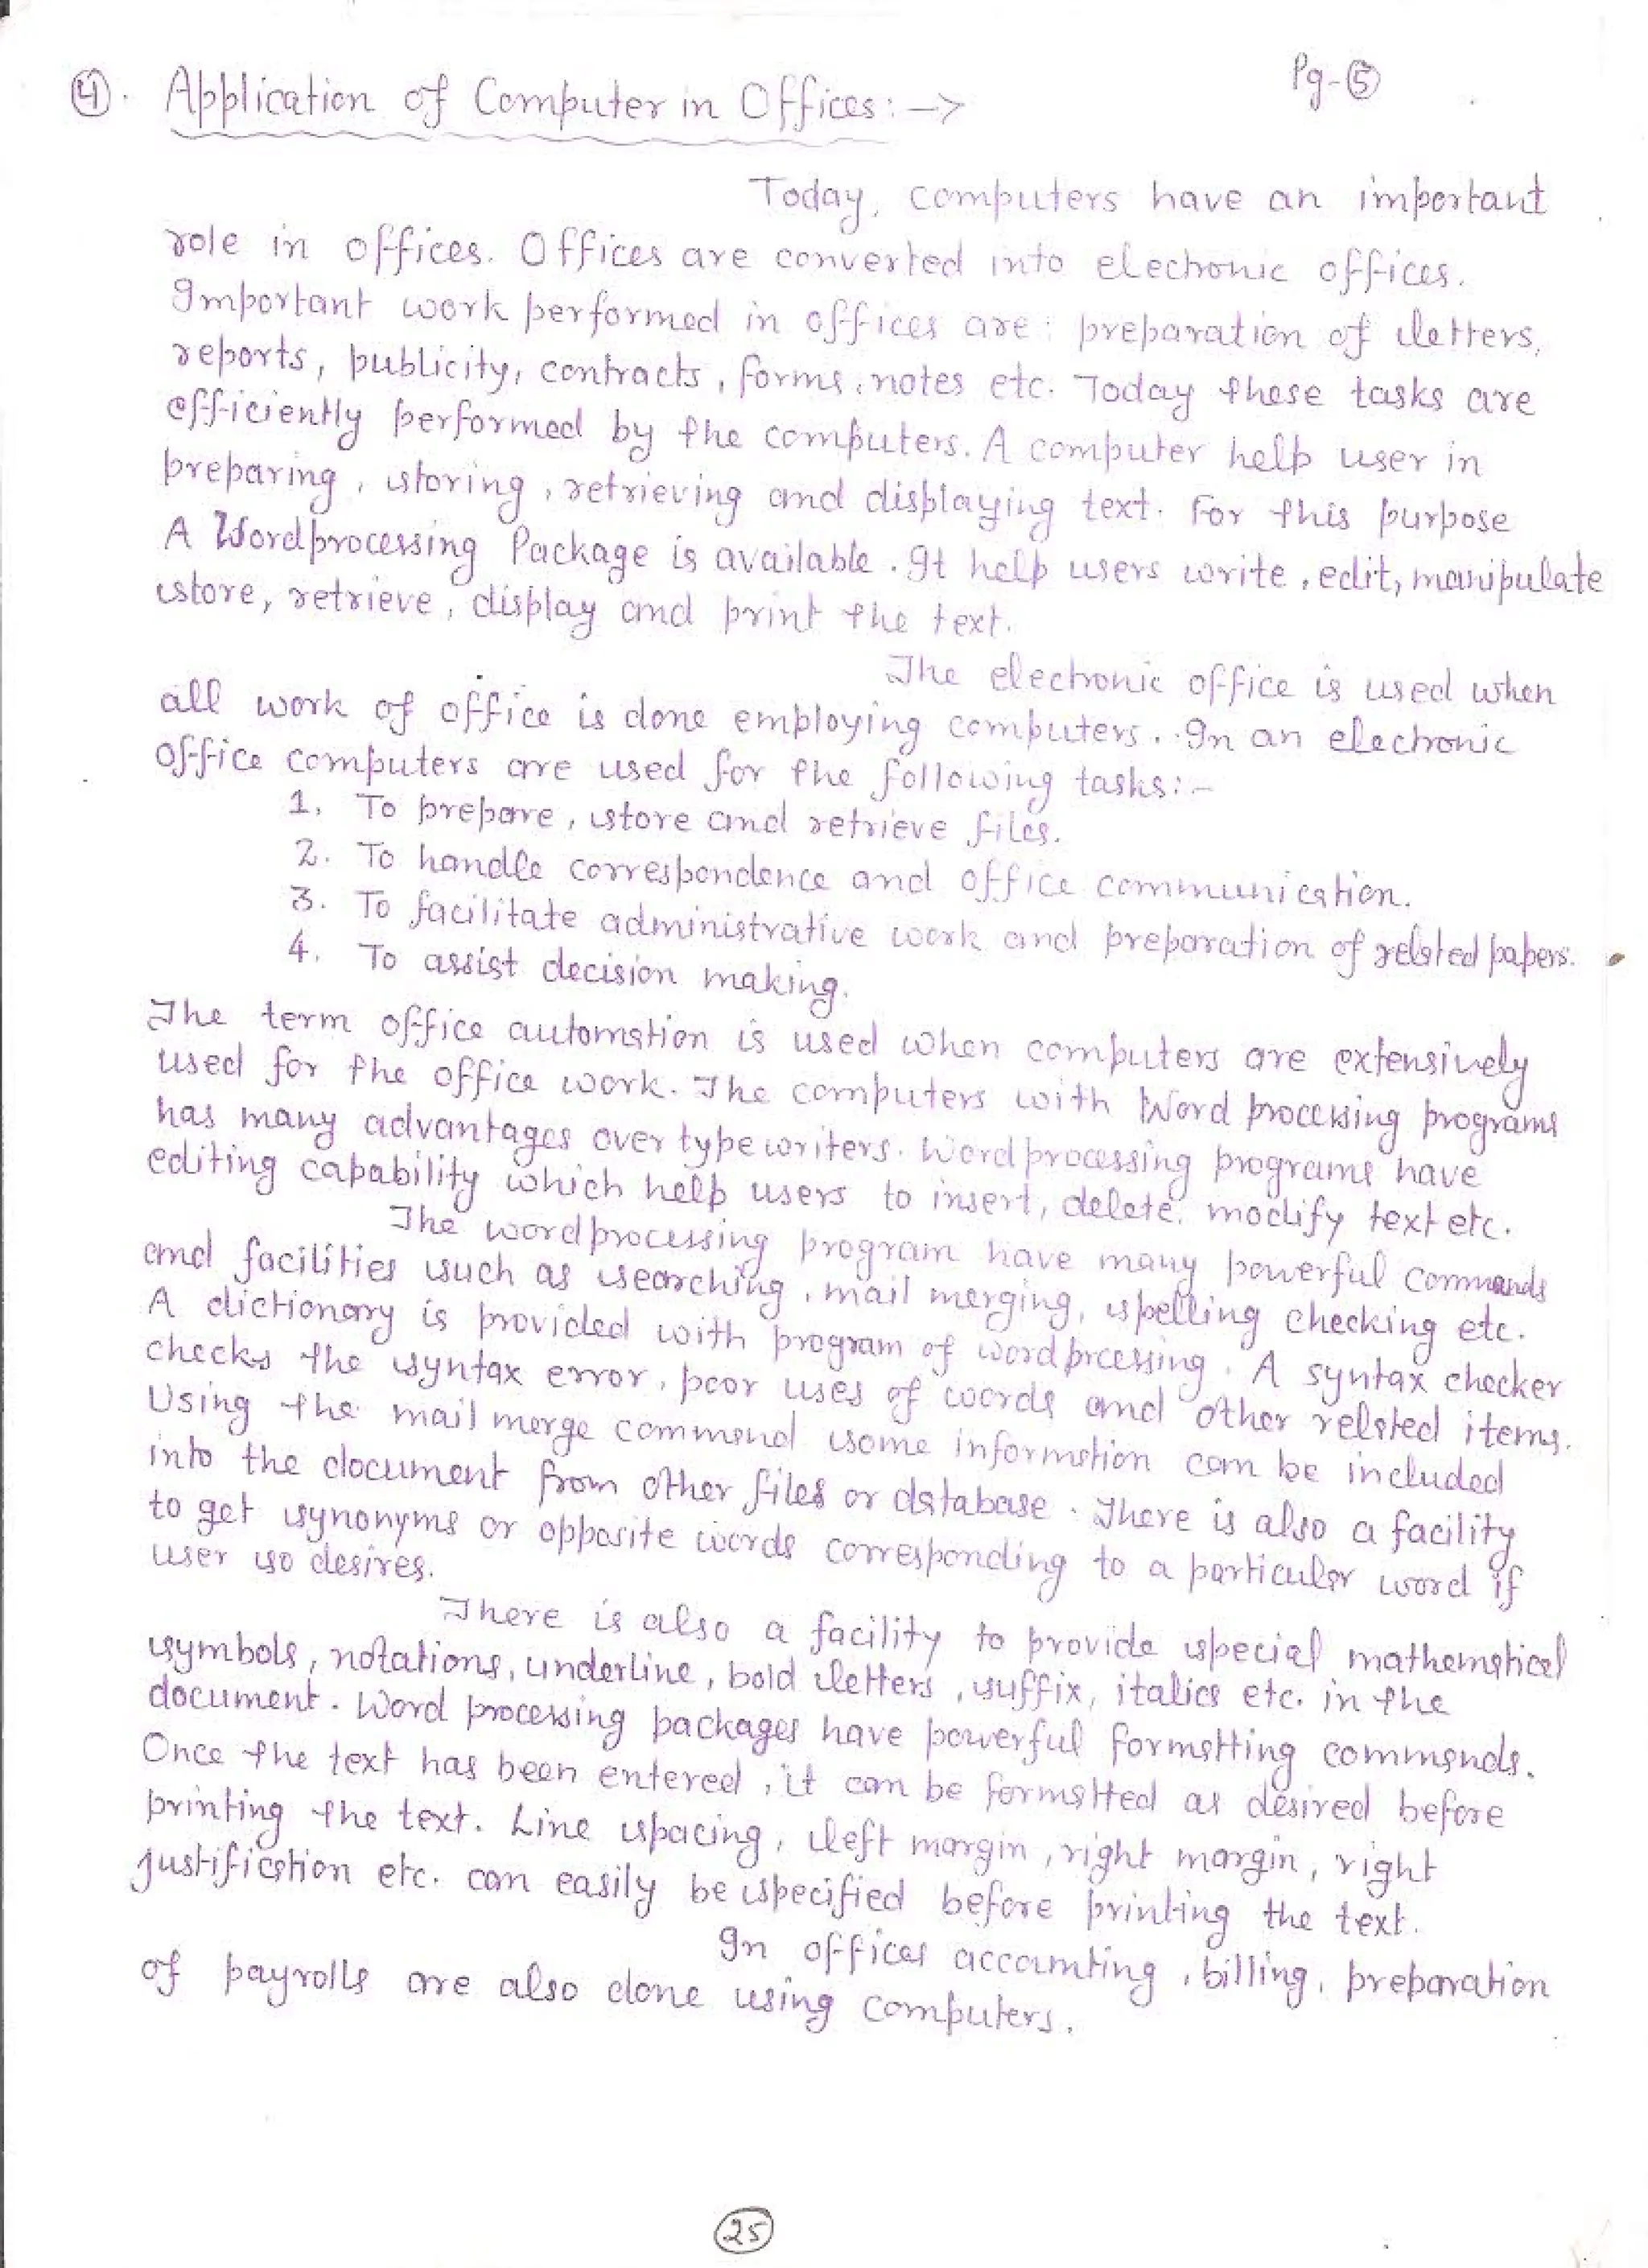 Pg-5
4. Application of Computer in Offices:->
Today, computers have an important
role in offices. Offices are converted into electronic offices.
Important work performed in offices are: preparation of letters,
reports, publicity, contracts, forms, notes etc. Today these tasks are
efficiently performed by the computers. A computer help user in
preparing, storing, retrieving and displaying text. For this purpose
A Wordprocessing Package is available. It help users write, edit, manipulate
store, retrieve, display and print the text.
The electronic office is used when
all work of office is done employing computers. In an electronic
office computers are used for the following tasks:-
1. To prepare, store and retrieve files.
2. To handle correspondence and office communication.
3. To facilitate administrative work and preparation of related papers.
4. To assist decision making.
The term office automation is used when computers are extensively
used for the office work. The computers with Word processing programs
has many advantages over typewriters. Wordprocessing programs have
editing capability which help users to insert, delete, modify text etc.
The wordprocessing program have many powerful commands
and facilities such as searching, mail merging, spelling checking etc.
A dictionary is provided with program of wordprcessing. A syntax checker
checks the syntax error, poor uses of words and other related items.
Using the mail merge command some information can be included
into the document from other files or database. There is also a facility
to get synonyms or opposite words corresponding to a particular word if
user so desires.
There is also a facility to provide special mathematical
symbols, notations, underline, bold letters, suffix, italics etc. in the
document. Word processing packages have powerful formatting commands.
Once the text has been entered, it can be formatted as desired before
printing the text. Line spacing, left margin, right margin, right
justification etc. can easily be specified before printing the text.
In offices accounting, billing, preparation
of payrolls are also done using computers.
25